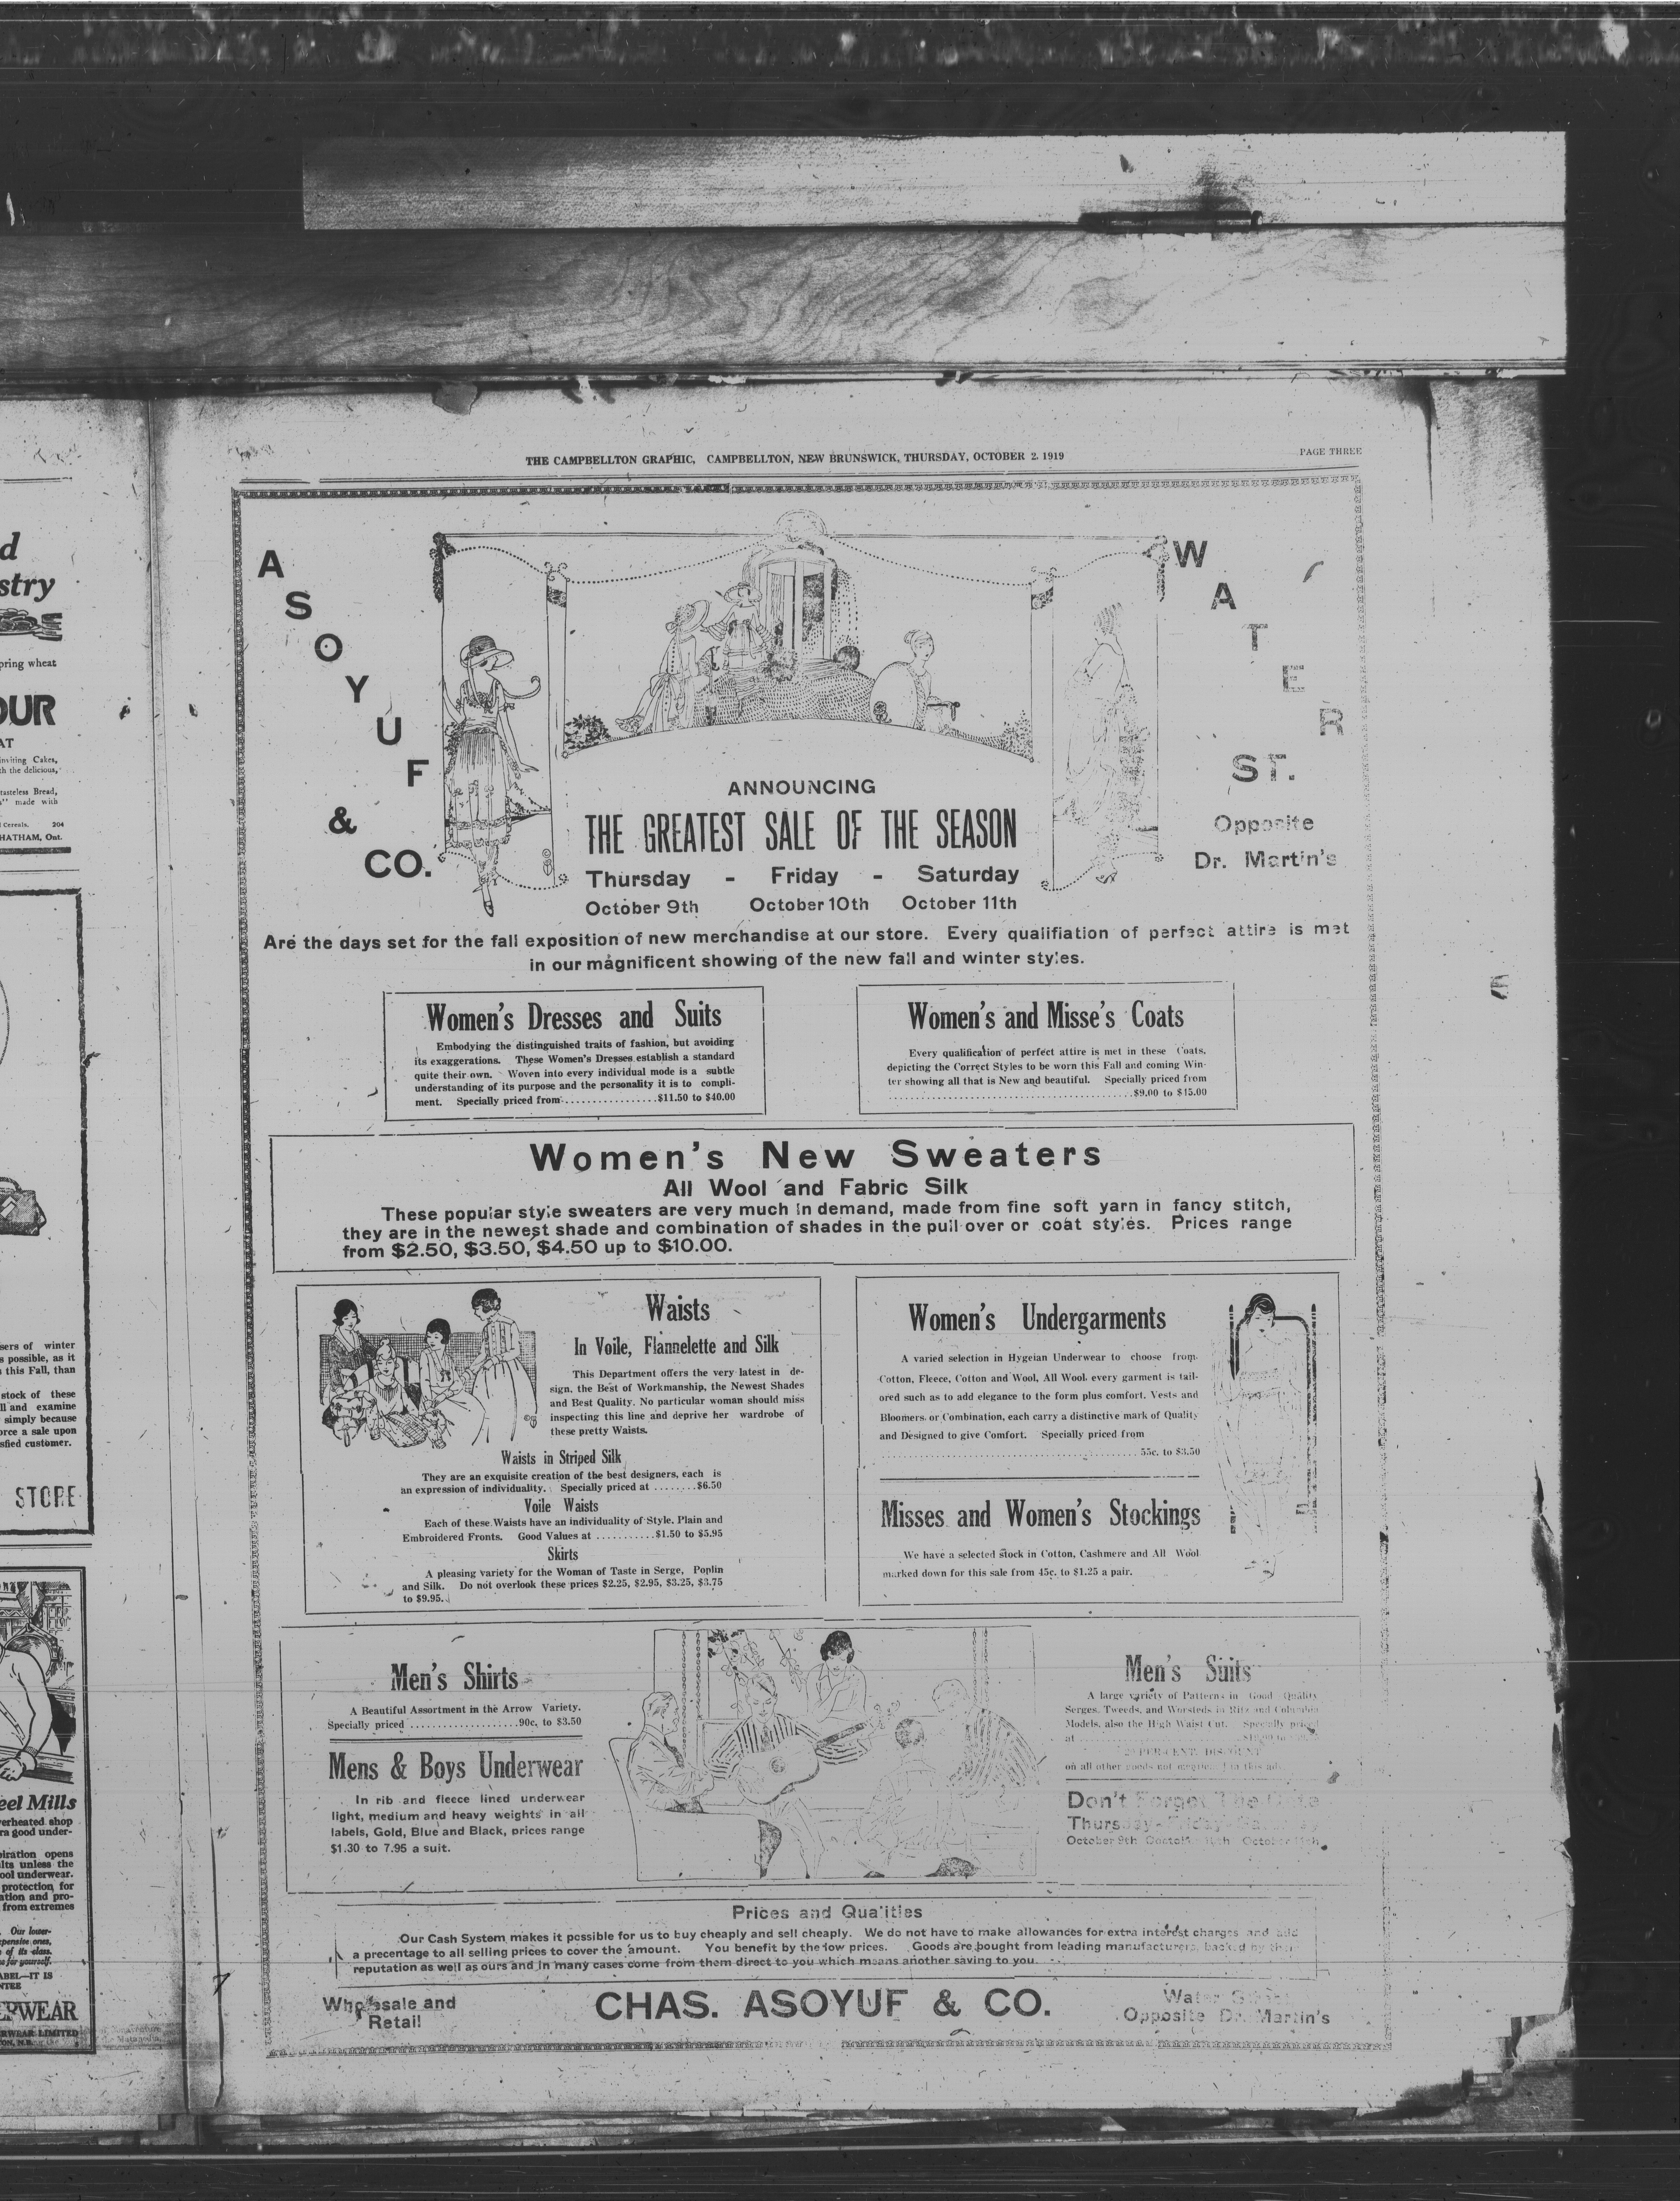 THE CAMPBELLTON GRAPHIC, CAMPBELLTON, NEW BRUNSWICK, THURSDAY, OCTOBER 2, 1919
PAGE THREE
ASOYUF
&
CO.
WATER
ST.
Opposite
Dr. Martin's
ANNOUNCING
THE GREATEST SALE OF THE SEASON
Thursday - Friday - Saturday
October 9th October 10th October 11th
Are the days set for the fall exposition of new merchandise at our store. Every qualifiation of perfect attire is met
in our magnificent showing of the new fall and winter styles.
Women's Dresses and Suits
Embodying the distinguished traits of fashion, but avoiding
its exaggerations. These Women's Dresses establish a standard
quite their own. Woven into every individual mode is a subtle
understanding of its purpose and the personality it is to compli-
ment. Specially priced from.................$11.50 to $40.00
Women's and Misse's Coats
Every qualification of perfect attire is met in these Coats,
depicting the Correct Styles to be worn this Fall and coming Win-
ter showing all that is New and beautiful. Specially priced from
............................................$9.00 to $15.00
Women's New Sweaters
All Wool and Fabric Silk
These popular style sweaters are very much in demand, made from fine soft yarn in fancy stitch,
they are in the newest shade and combination of shades in the pull over or coat styles. Prices range
from $2.50, $3.50, $4.50 up to $10.00.
Waists
In Voile, Flannelette and Silk
This Department offers the very latest in de-
sign, the Best of Workmanship, the Newest Shades
and Best Quality. No particular woman should miss
inspecting this line and deprive her wardrobe of
these pretty Waists.
Waists in Striped Silk
They are an exquisite creation of the best designers, each is
an expression of individuality. Specially priced at ........$6.50
Voile Waists
Each of these Waists have an individuality of Style. Plain and
Embroidered Fronts. Good Values at ...........$1.50 to $5.95
Skirts
A pleasing variety for the Woman of Taste in Serge, Poplin
and Silk. Do not overlook these prices $2.25, $2.95, $3.25, $3.75
to $9.95.
Women's Undergarments
A varied selection in Hygeian Underwear to choose from
Cotton, Fleece, Cotton and Wool, All Wool, every garment is tail-
ored such as to add elegance to the form plus comfort. Vests and
Bloomers or Combination, each carry a distinctive mark of Quality
and Designed to give Comfort. Specially priced from
............................................55c. to $3.50
Misses and Women's Stockings
We have a selected stock in Cotton, Cashmere and All Wool
marked down for this sale from 45c. to $1.25 a pair.
Men's Shirts
A Beautiful Assortment in the Arrow Variety.
Specially priced ....................90c. to $3.50
Mens & Boys Underwear
In rib and fleece lined underwear
light, medium and heavy weights in all
labels, Gold, Blue and Black, prices range
$1.30 to 7.95 a suit.
Men's Suits
A large variety of Patterns in Good Quality
Serges, Tweeds, and Worsteds in Ritz and Columbia
Models, also the High Waist Cut. Specially priced
at
PER CENT. DISCOUNT
on all other goods not in this ad.
Don't Forget The Date
Thursday - Friday - Saturday
October 9th October 11th
Prices and Qualities
Our Cash System makes it possible for us to buy cheaply and sell cheaply. We do not have to make allowances for extra interest charges and add
a precentage to all selling prices to cover the amount. You benefit by the low prices. Goods are bought from leading manufacturers, backed by their
reputation as well as ours and in many cases come from them direct to you which means another saving to you.
Wholesale and
Retail
CHAS. ASOYUF & CO.
Water Street
Opposite Dr. Martin's
stry
pring wheat
OUR
AT
inviting Cakes,
th the delicious,
tasteless Bread,
made with
Cereals. 204
HATHAM, Ont.
sers of winter
s possible, as it
this Fall, than
stock of these
ll and examine
simply because
orce a sale upon
sfied customer.
STORE
eel Mills
verheated shop
ra good under-
piration opens
lts unless the
ool underwear.
protection for
ation and pro-
from extremes
Our lower-
xpensive ones,
of its class.
for yourself.
ABEL—IT IS
NTEE
ERWEAR
RWEAR LIMITED
TON, N.B.